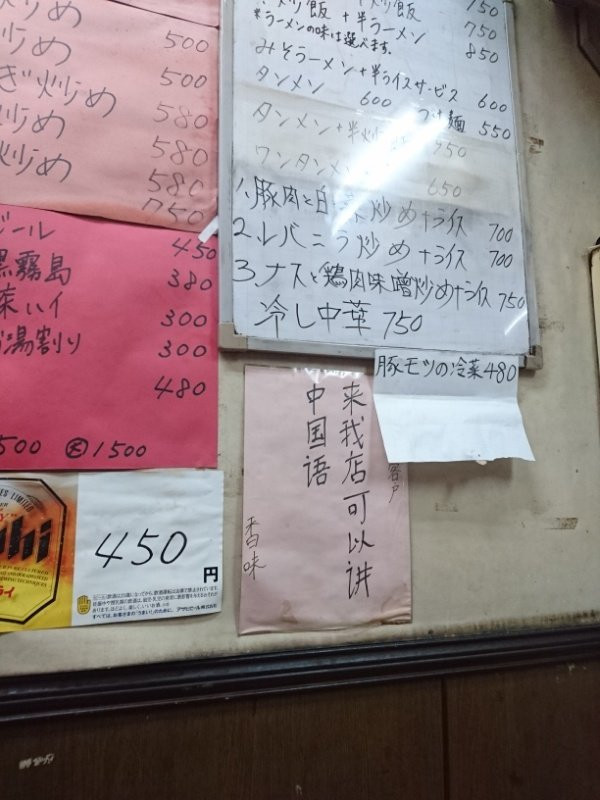 炒め
炒め 500
ぎ炒め 500
炒め 580
炒め 580
580
750
ビール 450
黒霧島 380
300
湯割り 300
480
500 大1500
450円
アサヒビール株式会社
炒飯 750
炒飯+半ラーメン 750
*ラーメンの味は選べます。 850
みそラーメン+半ライスサービス 600
タンメン 600 つけ麺 550
タンメン+半炒
ワンタンメン 650
1.豚肉と白菜炒め+ライス 700
2.レバニラ炒め+ライス 700
3.ナスと鶏肉味噌炒め+ライス 750
冷し中華 750
豚モツの冷菜480
来我店可以讲
中国语
香味
客户